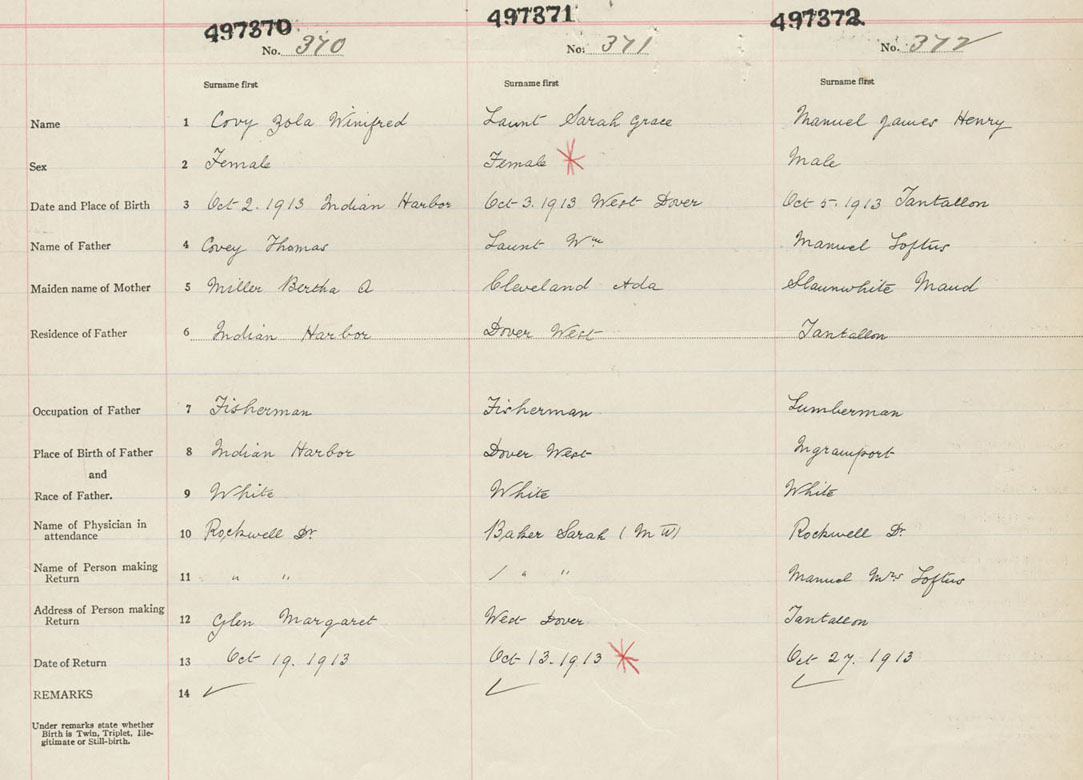 497370 497371 497372
No. 370 No. 371 No. 372
Surname first Surname first Surname first
Name 1 Covy Zola Winifred Launt Sarah Grace Manuel James Henry
Sex 2 Female Female Male
Date and Place of Birth 3 Oct 2. 1913 Indian Harbor Oct 3. 1913 West Dover Oct 5. 1913 Tantallon
Name of Father 4 Covey Thomas Launt Wm Manuel Loftus
Maiden name of Mother 5 Miller Bertha A Cleveland Ada Slaunwhite Maud
Residence of Father 6 Indian Harbor Dover West Tantallon
Occupation of Father 7 Fisherman Fisherman Lumberman
Place of Birth of Father 8 Indian Harbor Dover West Ingramport
and
Race of Father. 9 White White White
Name of Physician in
attendance 10 Rockwell Dr. Baker Sarah (M W) Rockwell Dr.
Name of Person making
Return 11 " " / " " Manuel Mrs Loftus
Address of Person making
Return 12 Glen Margaret West Dover Tantallon
Date of Return 13 Oct 19. 1913 Oct 13. 1913 Oct 27. 1913
REMARKS 14
Under remarks state whether
Birth is Twin, Triplet, Ille-
gitimate or Still-birth.